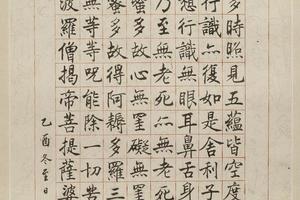 多時照見五蘊皆空度
行識亦復如是舍利子
想行識無眼耳鼻舌身
乃至無老死亦無老死
蜜多故心無罣礙無罣
蜜多故得阿耨多羅三
無等等呪能除一切苦
波羅僧揭帝菩提薩婆
乙酉冬至日